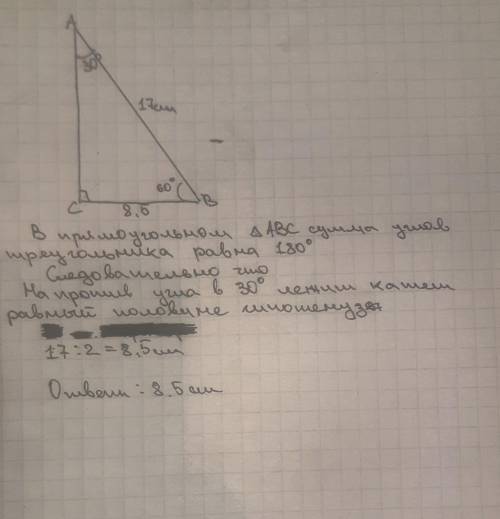 A
30°
17см
60°
C
B
8,5
В прямоугольном △ABC сумма углов
треугольника равна 180°
Следовательно что
Напротив угла в 30° лежит катет
равный половине гипотенузы
17÷2=8,5см
Ответ: 8.5см